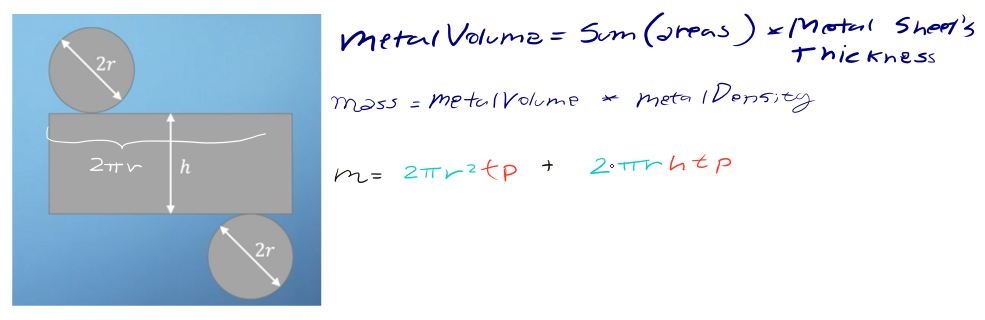 2r
2πr
h
2r
metalVolume = Sum(areas) * Metal Sheet's
Thickness
mass = metalVolume * metalDensity
m = 2πr²tp + 2·πrhtp